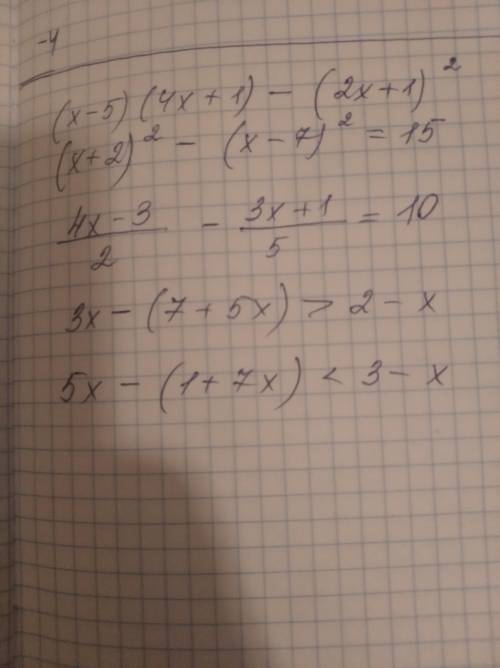 -4
(x-5)(4x+1) - (2x+1)²
(x+2)² - (x-7)² = 15
(4x-3)/2 - (3x+1)/5 = 10
3x - (7+5x) > 2 - x
5x - (1+7x) < 3 - x